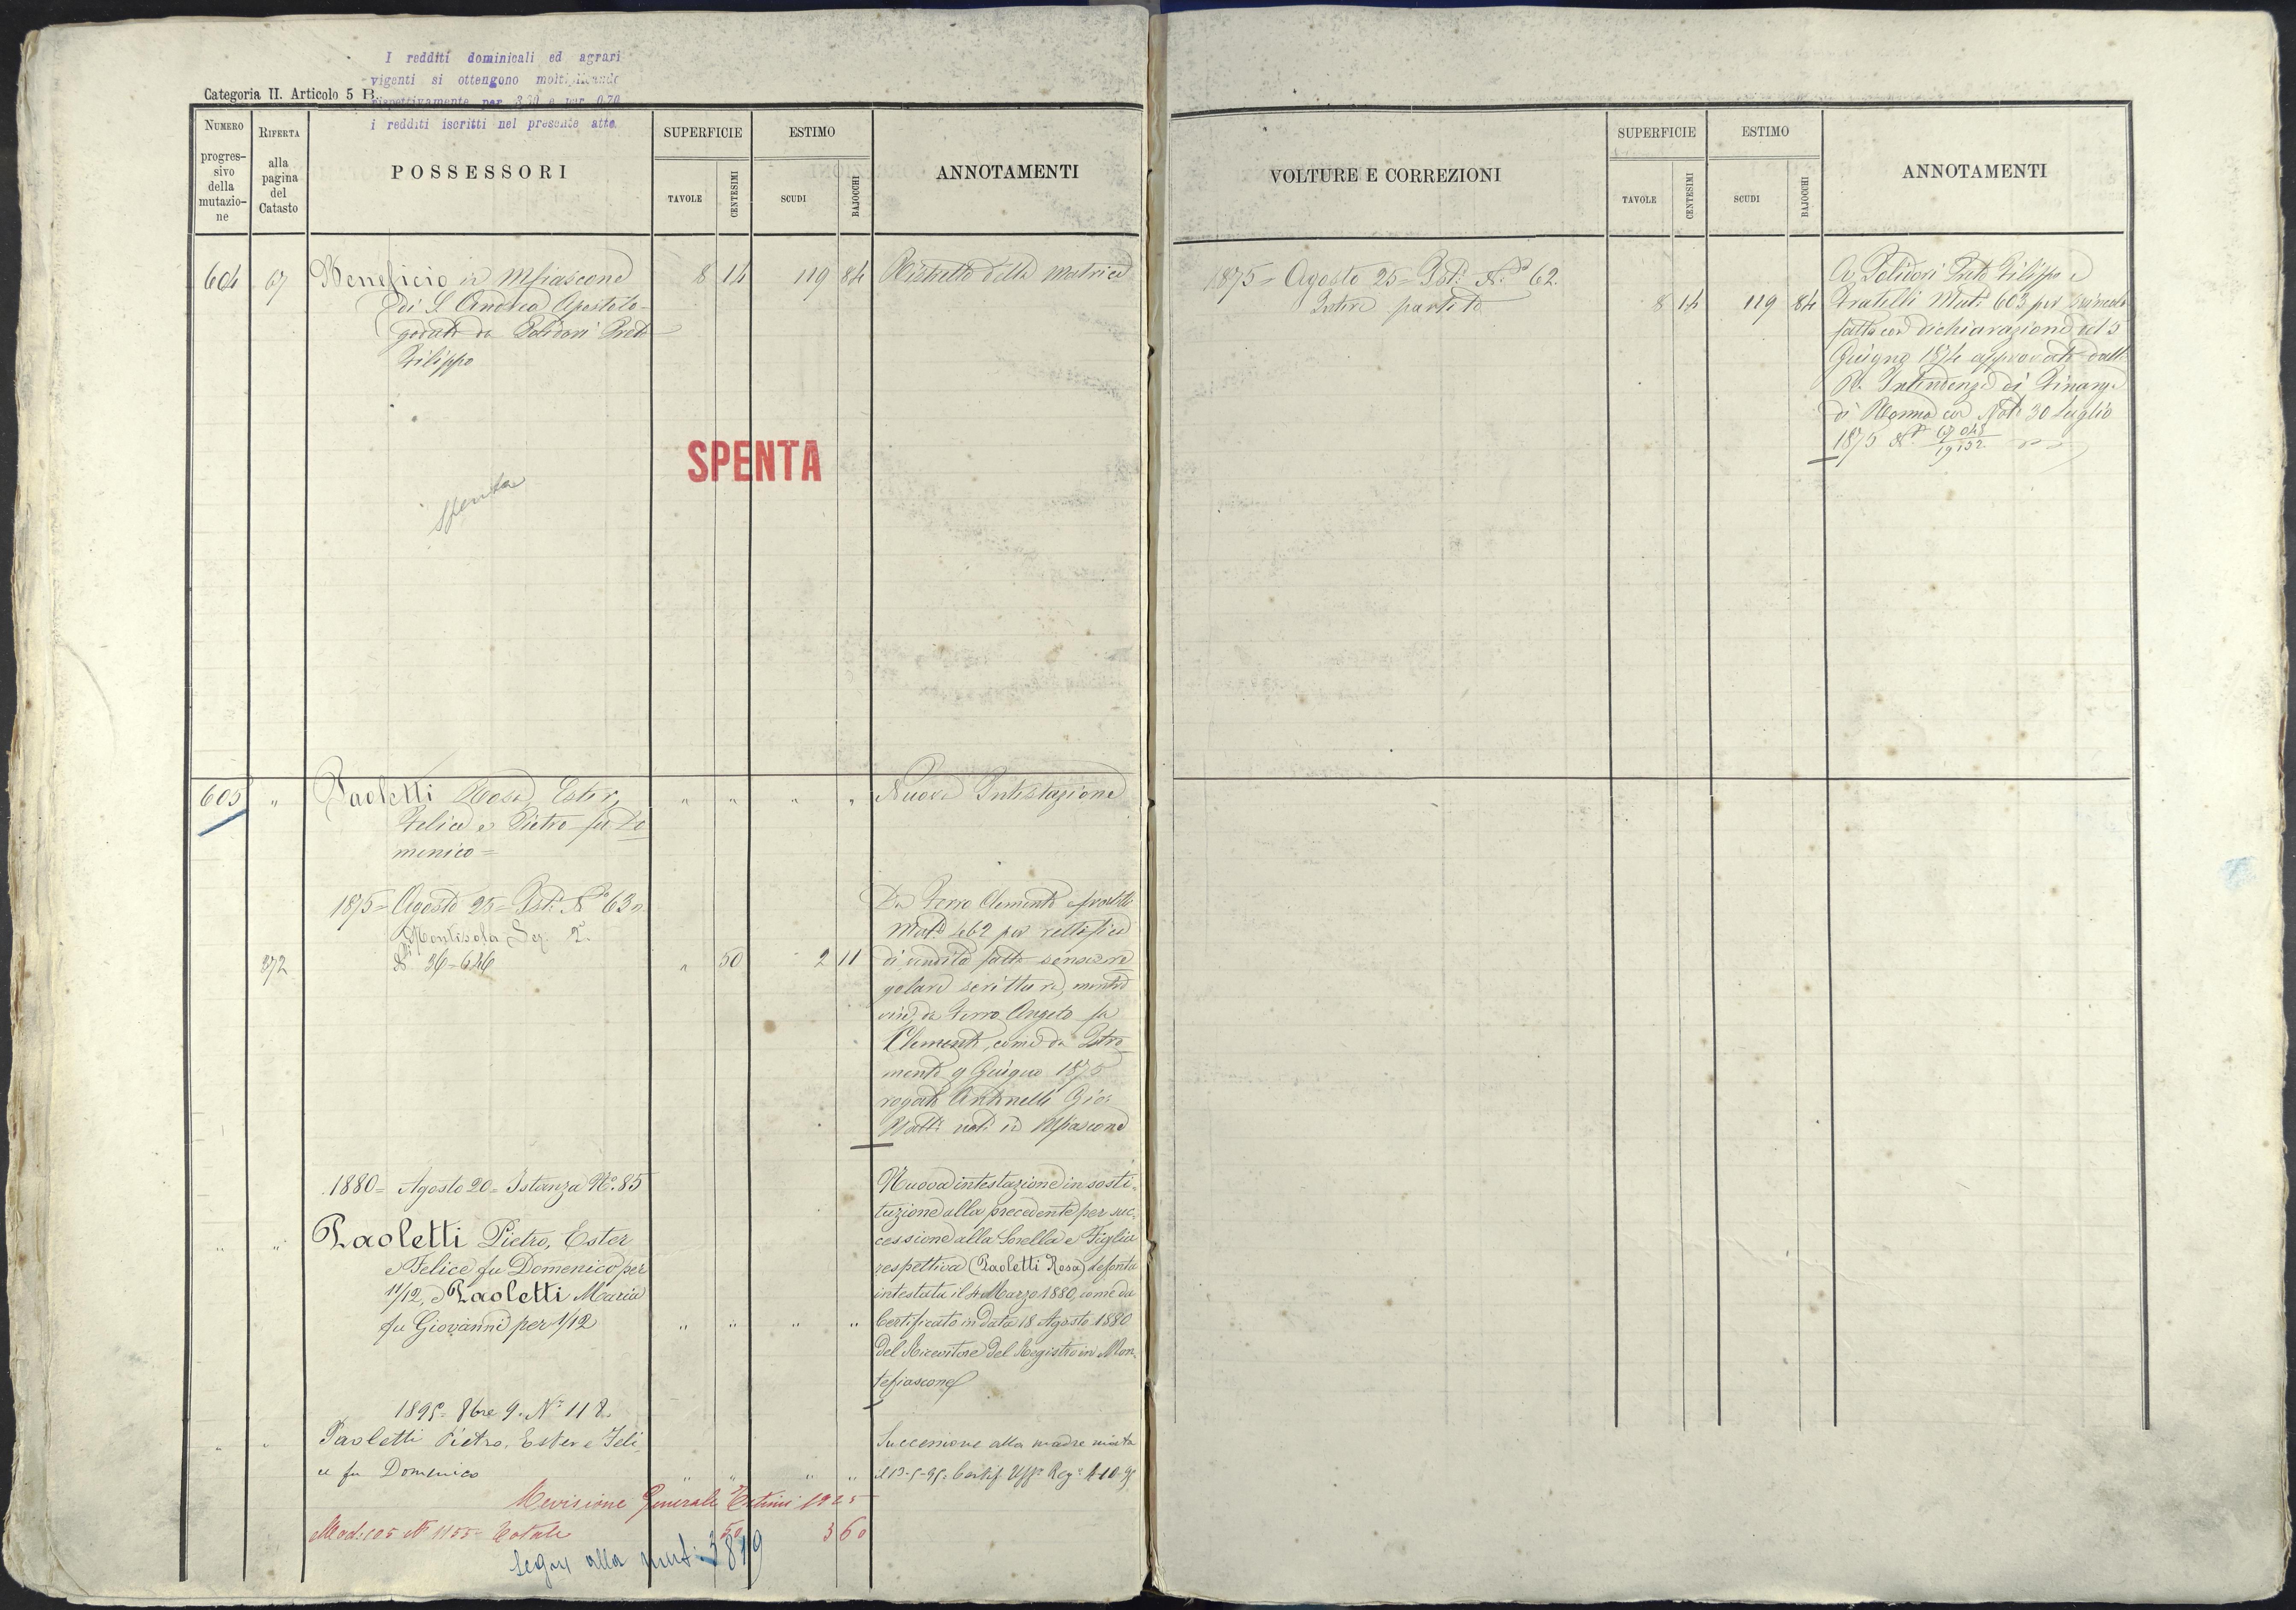 I redditi dominicali ed agrari
vigenti si ottengono moltiplicando
Categoria II. Articolo 5 B.
rispettivamente per 3,20 e per 0,70
i redditi iscritti nel presente atto.
NUMERO progres-sivo della mutazio-ne
RIFERTA alla pagina del Catasto
POSSESSORI
SUPERFICIE
TAVOLE
CENTESIMI
ESTIMO
SCUDI
BAJOCCHI
ANNOTAMENTI
604 67 Beneficio in Mfiascone 8 14 119 84 Ristretto della matrice
di S. Andrea Apostolo
goduto da Polidori Prete
Filippo
SPENTA
Spenta
605 " Paoletti Rosa, Ester, " " " " Nuova Intestazione
Felice e Pietro fu Do
menico =
1875 = Agosto 25 = Ist: N° 63 Da Ferro Clemente
Montisola Sez. 2ª Mut: 462 per rettifica
372 Ni 36 = 646 " 50 2 11 di vendita fatta senza re
golare scrittura, mentre
da Ferro Angelo fu
Clemente, come da Istro
mento 9 Giugno 1875
rogato Antonelli Gio:
Batta not: in Mfiascone
1880 = Agosto 20 = Istanza N°. 85 Nuova intestazione in sosti
tuzione alla precedente per suc
" " Paoletti Pietro, Ester cessione alla Sorella e Figlia
e Felice fu Domenico per respettiva (Paoletti Rosa) defonta
11/12, e Paoletti Maria intestata il 4 Marzo 1880, come da
fu Giovanni per 1/12 " " " " Certificato in data 18 Agosto 1880
del Ricevitore del Registro in Mon
tefiascone
1895 = 8bre 9. N° 118
" " Paoletti Pietro, Ester e Feli Successione alla madre morta
ce fu Domenico " " " " il 13-5-95. Certif. Uffº Regº 4-10-95
Revisione Generale Estimi 1925
Mod. 105 N° 1155 = Totale 50 3 60
Segue alla mut. 3819
VOLTURE E CORREZIONI
SUPERFICIE
TAVOLE
CENTESIMI
ESTIMO
SCUDI
BAJOCCHI
ANNOTAMENTI
1875 = Agosto 25 = Ist: N° 62. A Polidori Prete Filippo e
Intera partita 8 14 119 84 Fratelli Mut: 603 per svincolo
fatto con dichiarazione del 5
Giugno 1874 approvata dall
R. Intendenza di Finanza
di Roma con Nota 30 Luglio
1875 N° 67045/19132